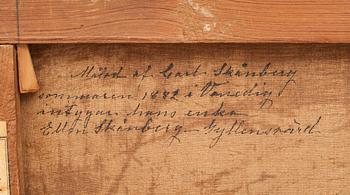 Målad af Carl Skånberg
sommaren 1882 i Venedig,
intygar hans enka
Ellen Skånberg-Gyllensvärd.